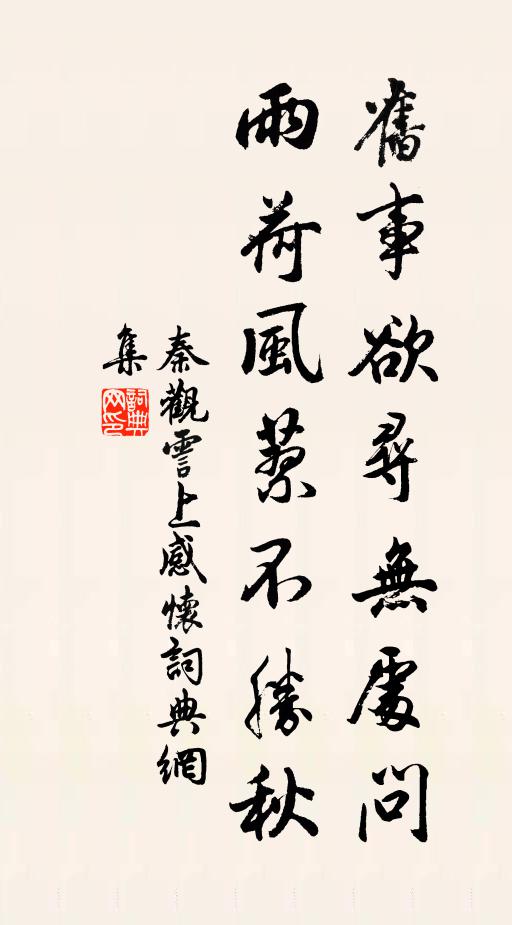 舊事欲尋無處問
雨荷風蓼不勝秋
秦觀霅上感懷詞典網
集
詞典網印